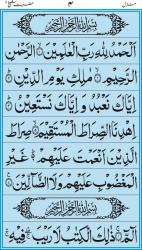 بِسْمِ اللهِ الرَّحْمٰنِ الرَّحِيْمِ
اَلْحَمْدُ لِلّٰهِ رَبِّ الْعٰلَمِيْنَ ۙ الرَّحْمٰنِ
الرَّحِيْمِ ۙ مٰلِكِ يَوْمِ الدِّيْنِ ؕ
اِيَّاكَ نَعْبُدُ وَاِيَّاكَ نَسْتَعِيْنُ ؕ
اِهْدِنَا الصِّرَاطَ الْمُسْتَقِيْمَ ۙ صِرَاطَ
الَّذِيْنَ اَنْعَمْتَ عَلَيْهِمْ ۙ غَيْرِ
الْمَغْضُوْبِ عَلَيْهِمْ وَلَا الضَّآلِّيْنَ
بِسْمِ اللهِ الرَّحْمٰنِ الرَّحِيْمِ
الٓمّٓ ۚ ذٰلِكَ الْكِتٰبُ لَا رَيْبَ ۛ فِيْهِ